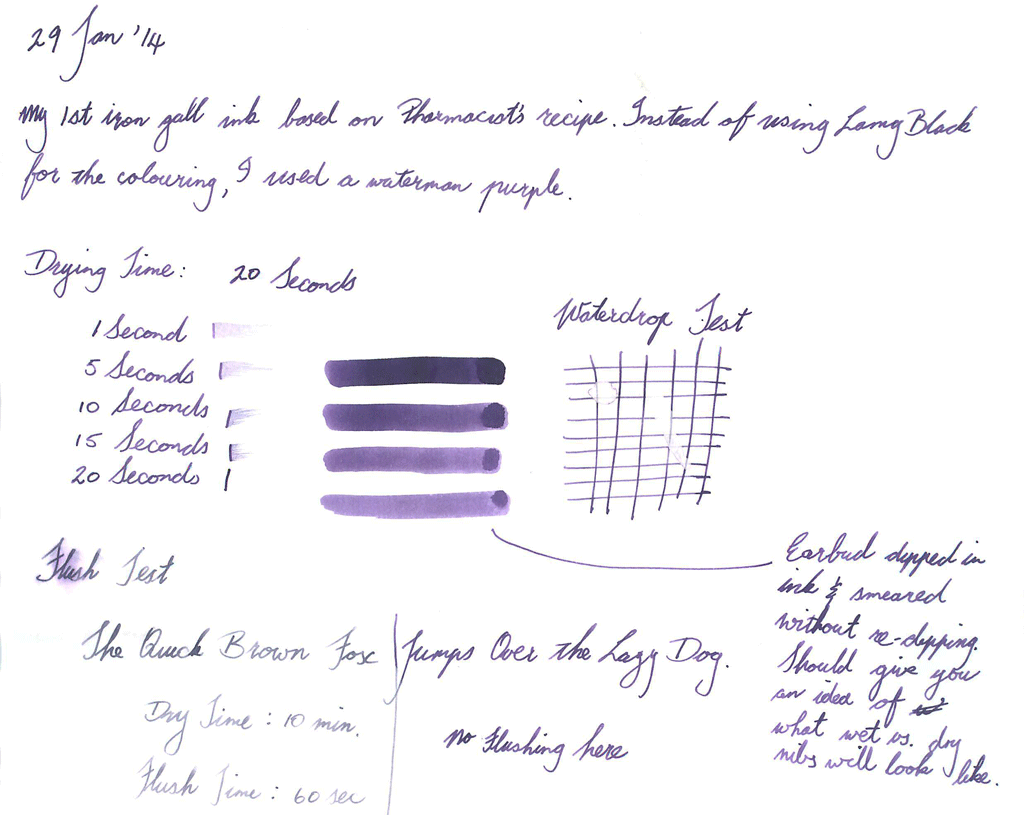 29 Jan '14
My 1st iron gall ink based on Pharmacist's recipe. Instead of using Lamy Black
for the colouring, I used a waterman purple.
Drying Time: 20 Seconds
1 Second
5 Seconds
10 Seconds
15 Seconds
20 Seconds
Waterdrop Test
Earbud dipped in
ink & smeared
without re-dipping.
Should give you
an idea of
what wet vs. dry
nibs will look like.
Flush Test
The Quick Brown Fox Jumps Over the Lazy Dog.
Dry Time : 10 min.
Flush Time : 60 sec
No Flushing here